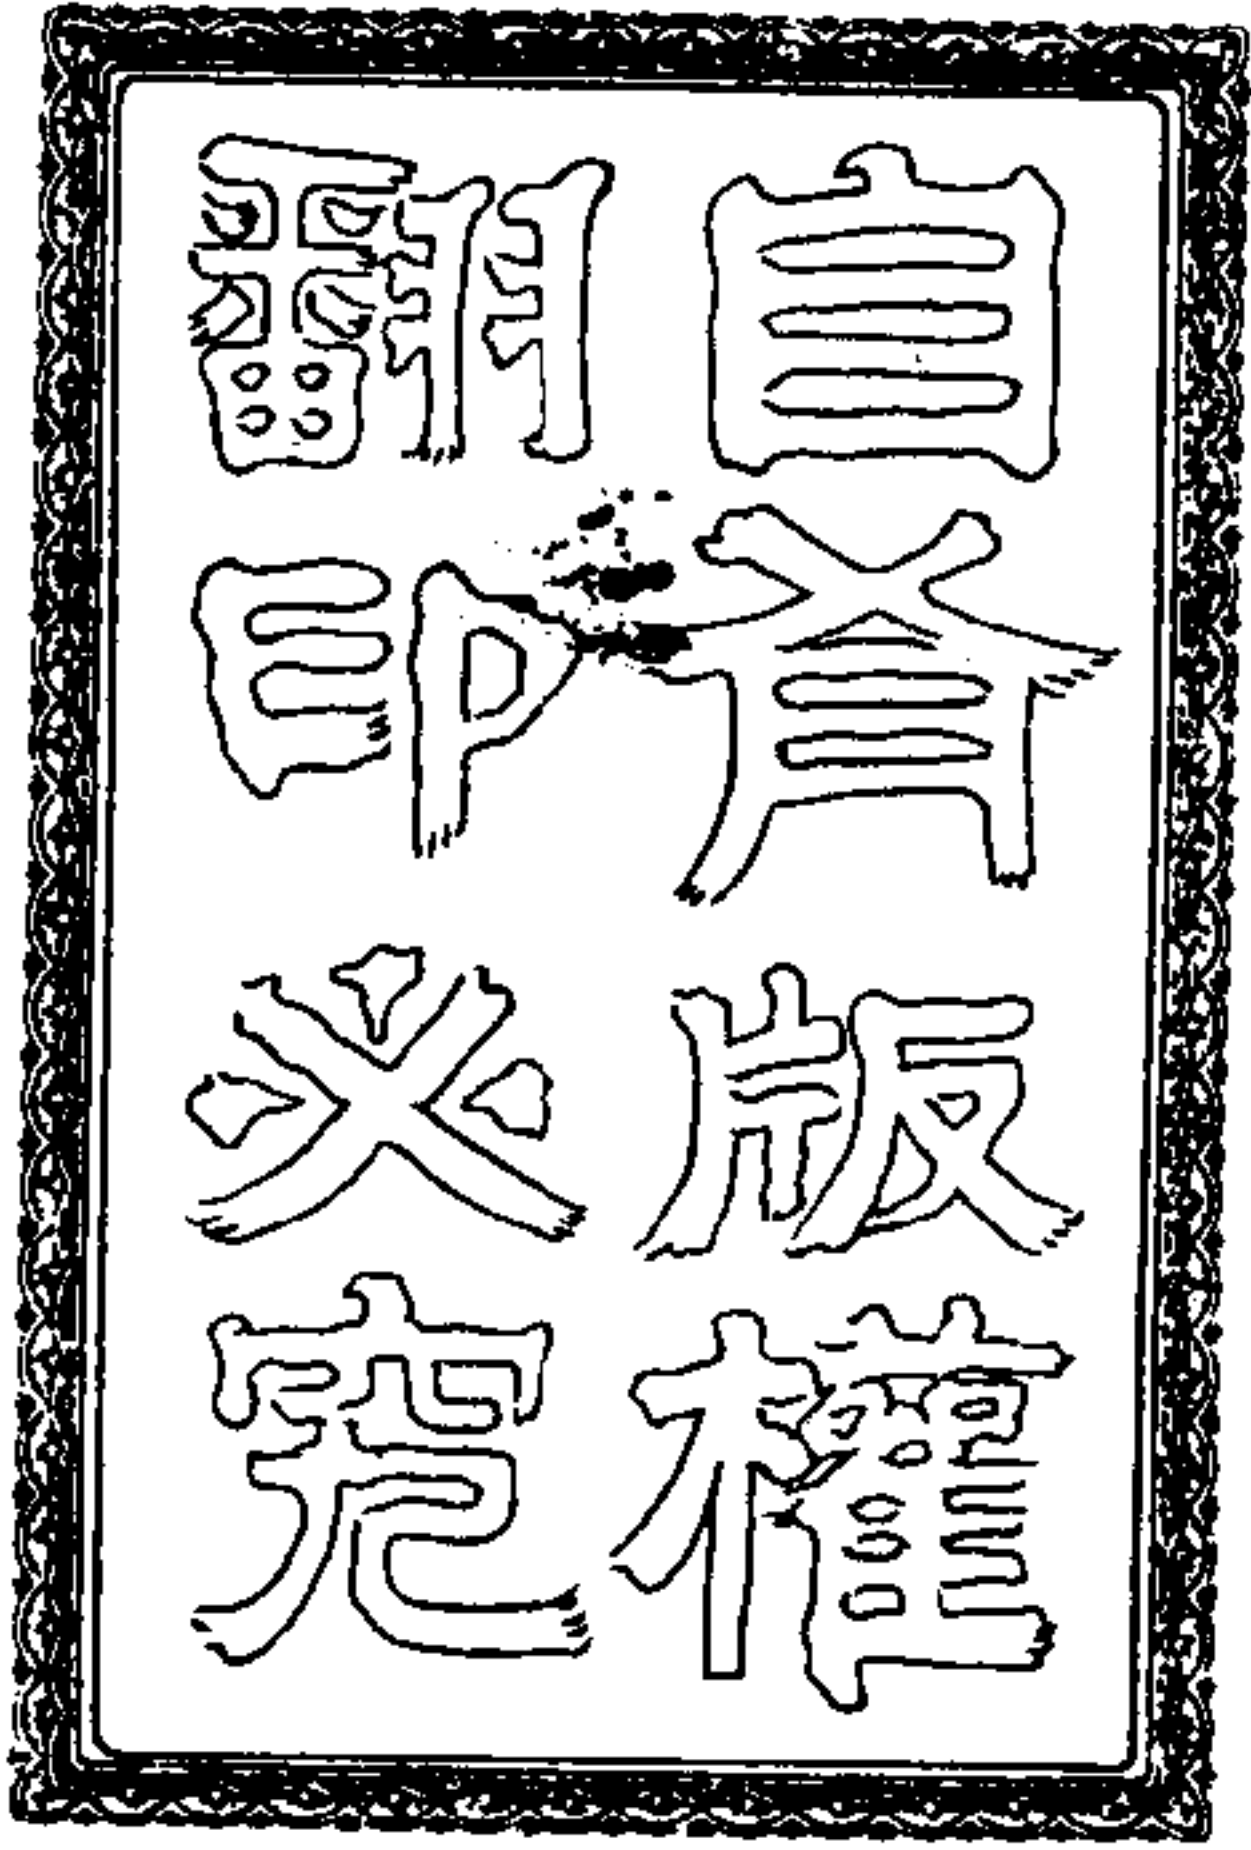 自有版權
翻印必究